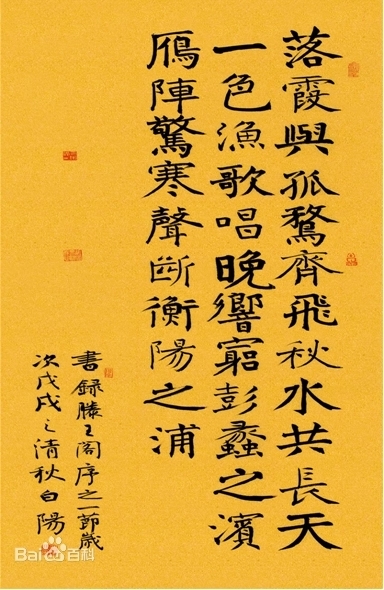 落霞與孤鶩齊飛秋水共長天
一色漁歌唱晚響窮彭蠡之濱
鴈陣驚寒聲斷衡陽之浦
書録滕王閣序之一節歲
次戊戌之清秋白陽
Bai百科